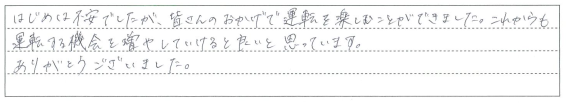 はじめは不安でしたが、皆さんのおかげで運転を楽しむことができました。これからも
運転する機会を増やしていけると良いと思っています。
ありがとうございました。